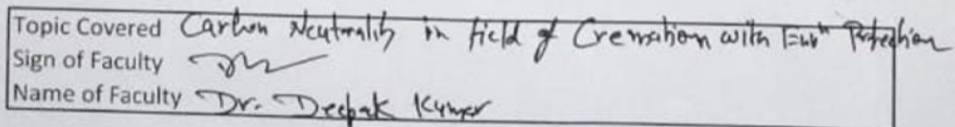 Topic Covered Carbon Neutrality in field of Cremation with Envn Protection
Sign of Faculty
Name of Faculty Dr. Deepak Kumar